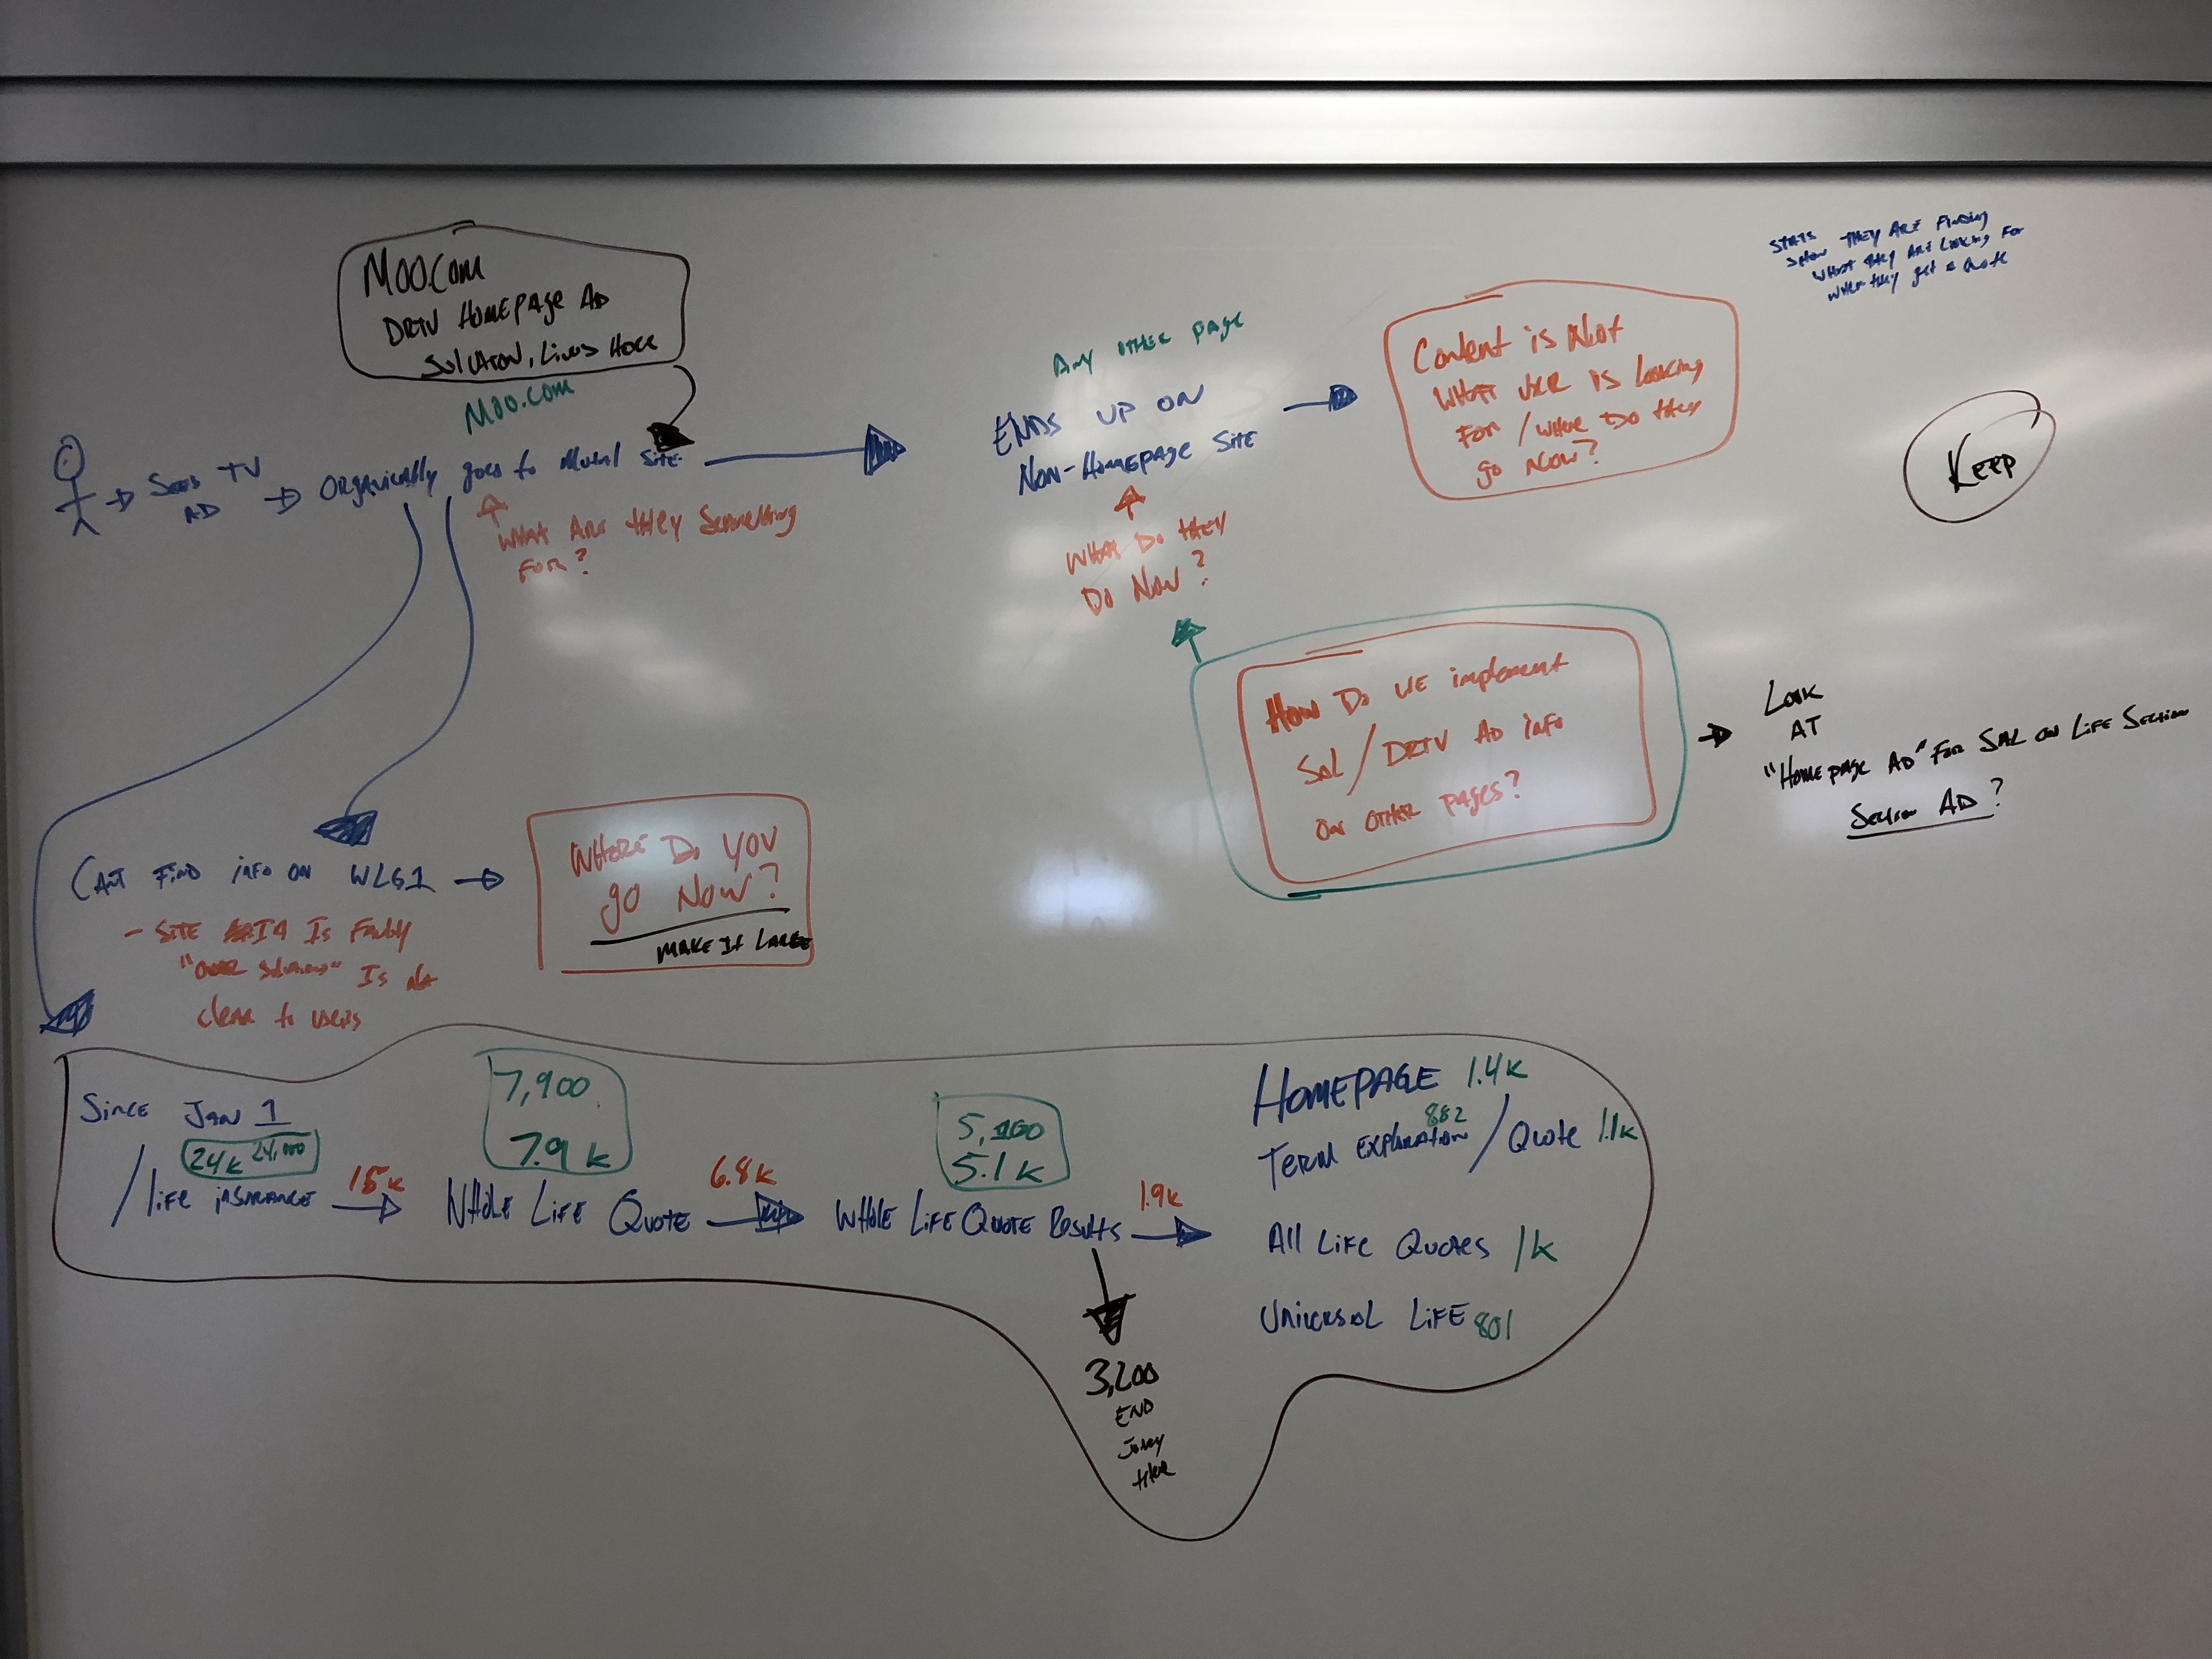 Moo.com
DRTV Homepage AD
Solution, Lives Here
Moo.com
Sees TV
AD
Organically goes to Mutual Site
What Are they Searching
For?
Any other page
Ends up on
Non-Homepage Site
What Do they
Do Now?
Content is Not
What User is Looking
For / Where Do they
go Now?
Stats
Show They Are Finding
What they Are Looking For
When they get a Quote
Keep
How Do we implement
SAL/DRTV AD info
on other pages?
Look
AT
"Homepage AD" For SAL on Life Section
Section AD?
Cant Find info on WLG1
Where Do you
go Now?
Make It Large
- Site Is Faulty
" " Is not
clear to users
Since Jan 1
24K 24,000
/life insurance
15K
7,900
7.9 K
Whole Life Quote
6.8K
5,100
5.1K
Whole Life Quote Results
1.9K
Homepage 1.4K
882
Term Explanation / Quote 1.1K
All Life Quotes 1K
Universal Life 801
3,200
End
Here